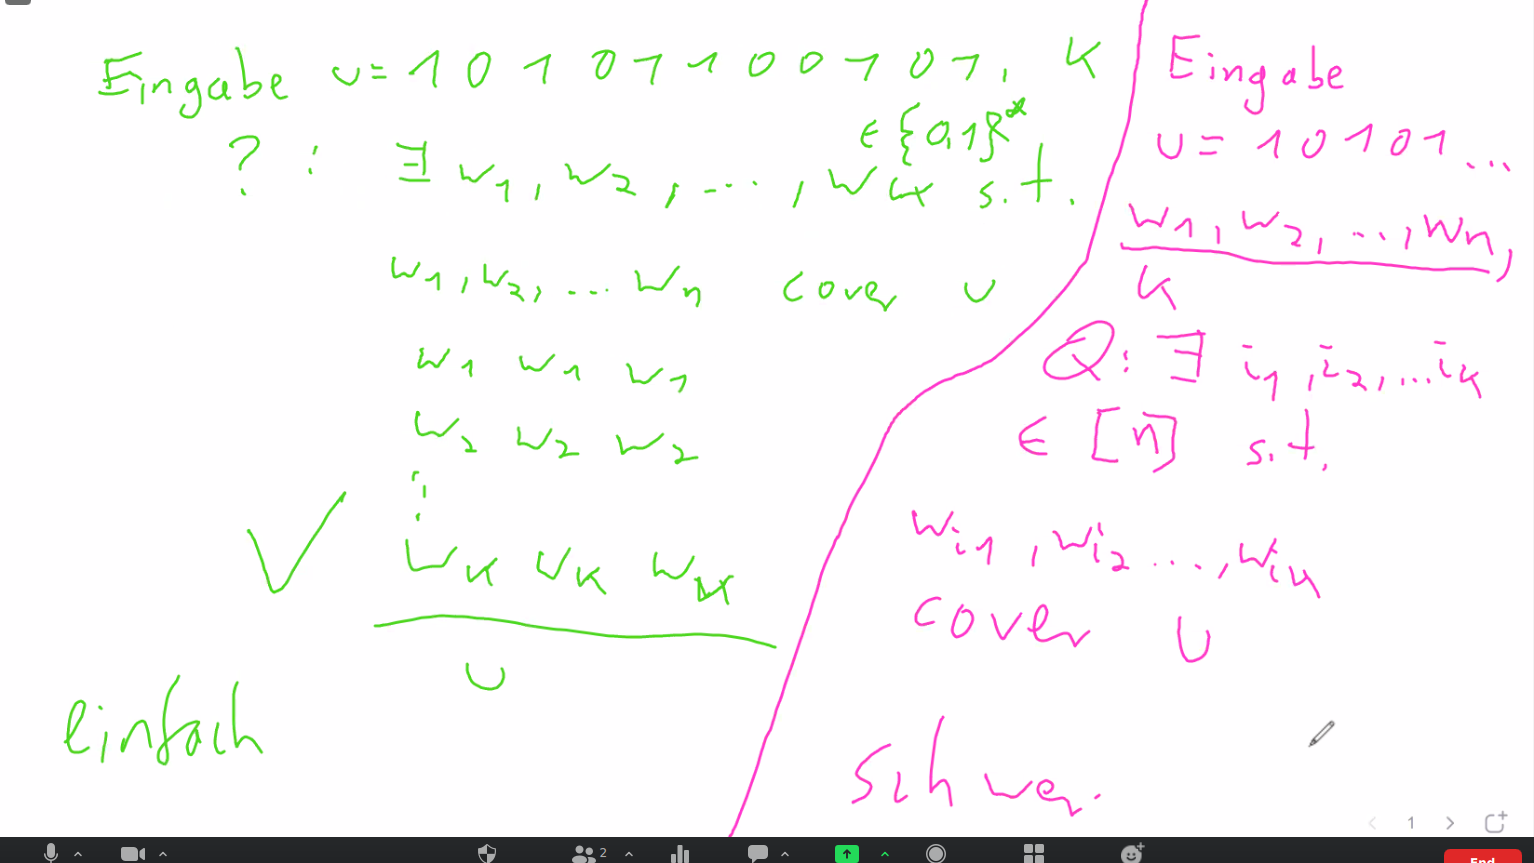 Eingabe u = 1 0 1 0 1 1 0 0 1 0 1, K
∈ {0,1}*
? : ∃ w1, w2, ..., wk s.t.
w1, w2, ... wn cover u
w1 w1 w1
w2 w2 w2
⋮
wk wk wk
u
einfach
Eingabe
u = 10101...
w1, w2, ..., wn,
K
Q: ∃ i1, i2, ... ik
∈ [n] s.t.
wi1, wi2 ..., wik
cover u
schwer.
1
2
End